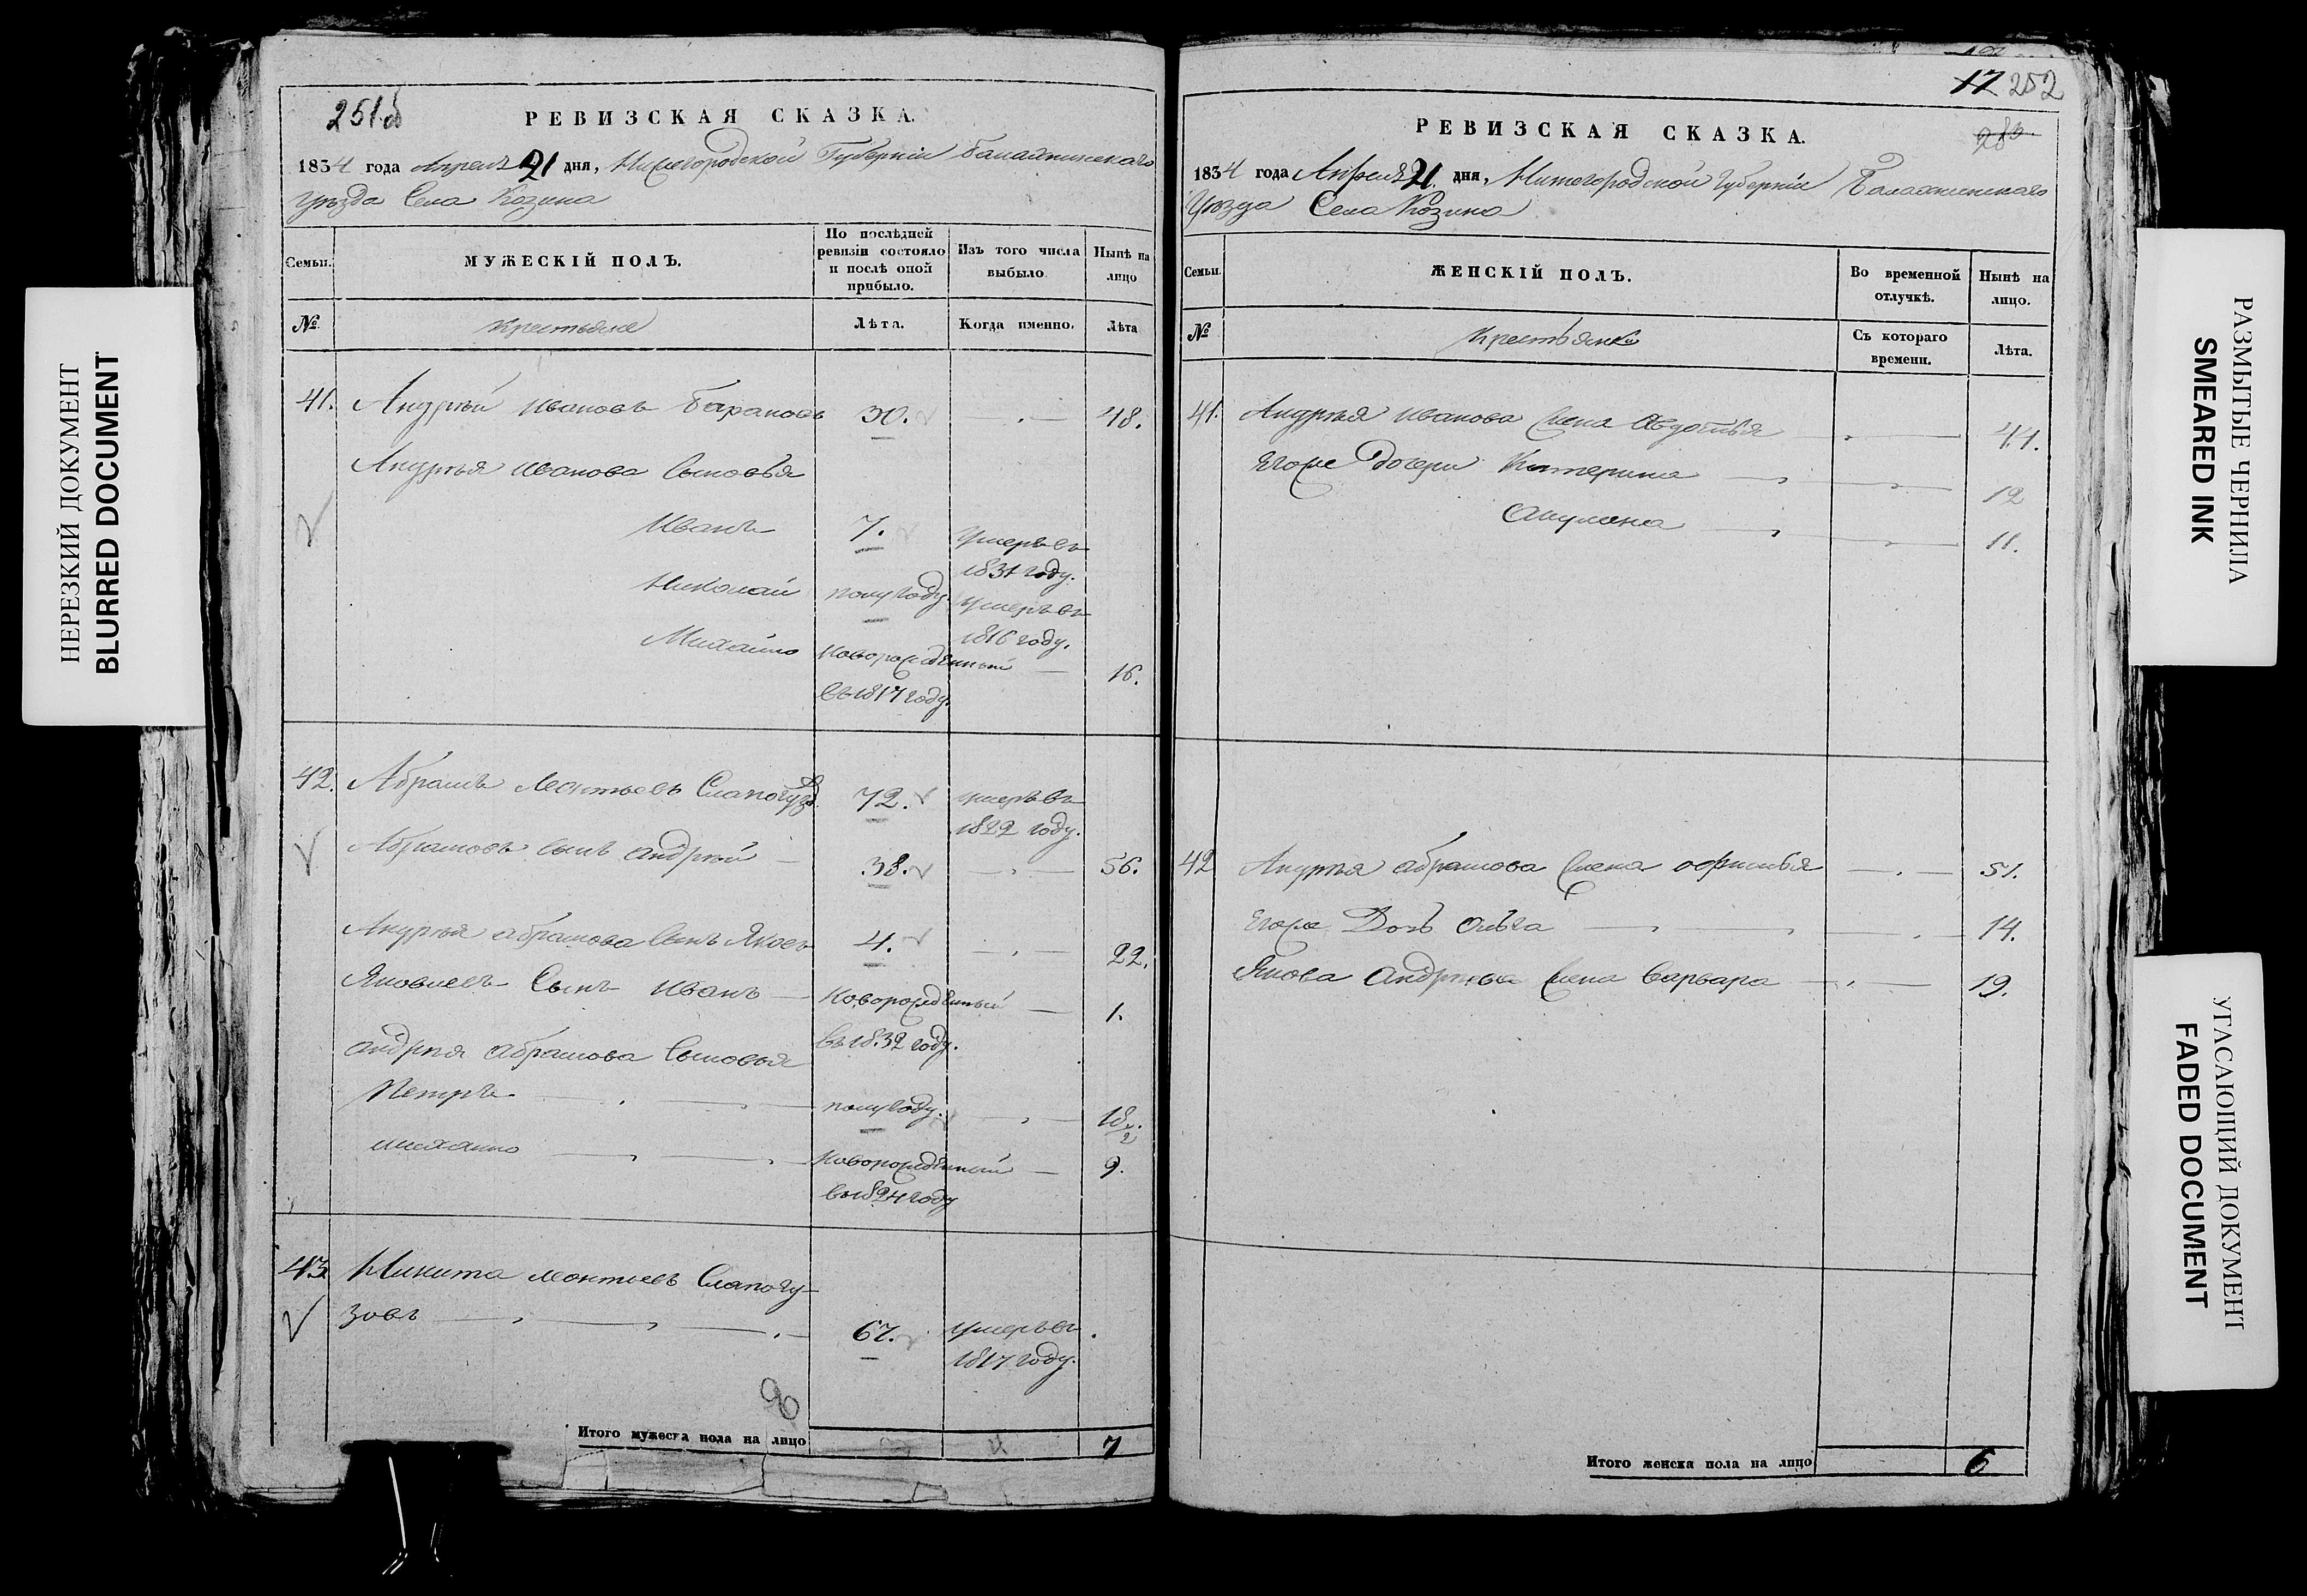 НЕРЕЗКИЙ ДОКУМЕНТ
BLURRED DOCUMENT
251об
РЕВИЗСКАЯ СКАЗКА.
1834 года Апреля 21 дня, Нижегородской Губернии Балахнинскаго
Уѣзда Села Козина
Семьи.
МУЖЕСКІЙ ПОЛЪ.
По послѣдней ревизіи состояло и послѣ оной прибыло.
Изъ того числа выбыло.
Нынѣ на лицо
№
Крестьяне
Лѣта.
Когда именно.
Лѣта
41. Андрѣй Ивановъ Барановъ 30. 48.
Андрѣя Иванова Сыновья
Иванъ 7. Умеръ въ
1831 году.
Николай полугоду. Умеръ въ
1816 году.
Михайло Новорожденный 16.
въ 1817 году.
42. Абрамъ Леонтьевъ 72. умеръ въ
1822 году.
Абрамовъ сынъ Андрѣй 38. 56.
Андрѣя Абрамова Сынъ Яковъ 4. 22.
Яковлевъ Сынъ Иванъ Новорожденный 1.
въ 1832 году.
Андрѣя Абрамова Сыновья
Петръ полугоду. 18 1/2
Михайло Новорожденный 9.
въ 1824 году
43. Никита Леонтьевъ Слапогу-
зовъ 67. умеръ въ
1817 году.
Итого мужеска пола на лицо 7
17 252
РЕВИЗСКАЯ СКАЗКА.
1834 года Апреля 21 дня, Нижегородской Губерніи Балахнинскаго
Уѣзда Села Козина
Семьи.
ЖЕНСКІЙ ПОЛЪ.
Во временной отлучкѣ.
Нынѣ на лицо.
№
Крестьянки
Съ котораго времени.
Лѣта.
41. Андрѣя Иванова Жена Авдотья 44.
Егоже Дочери Катерина 12
Акулина 11.
42 Андрѣя Абрамова Жена 51.
Егоже Дочь Ольга 14.
Якова Андрѣева Жена Варвара 19.
Итого женска пола на лицо 6
РАЗМЫТЫЕ ЧЕРНИЛА
SMEARED INK
УГАСАЮЩИЙ ДОКУМЕНТ
FADED DOCUMENT